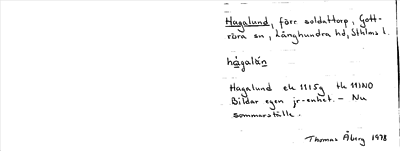 Hagalund, förr soldattorp, Gott-
röra sn, Långhundra hd, Sthlms l.
hágalän
Hagalund ek 11I5g tk 11INO
Bildar egen jr-enhet. – Nu
sommarställe.
Thomas Åberg 1978